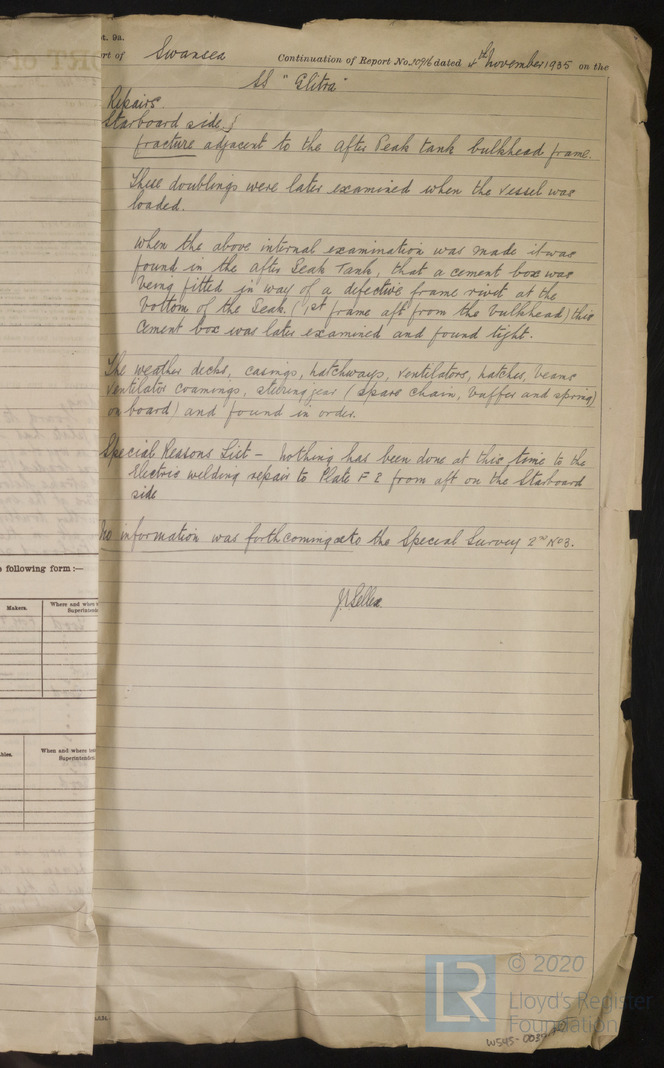 pt. 9a.
rt of Swansea Continuation of Report No. 10916 dated 4th November 1935 on the
SS "Elitra"
Repairs.
Starboard side }
fracture adjacent to the After Peak tank bulkhead frame.
These doublings were later examined when the vessel was
loaded.
When the above internal examination was made it was
found in the after Peak Tank, that a cement box was
being fitted in way of a defective frame rivet at the
bottom of the Peak. (1st frame aft from the bulkhead) this
cement box was later examined and found tight.
The weather decks, casings, hatchways, ventilators, hatches, beams
ventilator coamings, steering gear (spare chain, buffer and spring
on board) and found in order.
Special Reasons List - Nothing has been done at this time to the
Electric welding repair to Plate F 2 from aft on the Starboard
side
No information was forthcoming as to the Special Survey 2nd No 3.
e following form :—
Makers.
Where and when
Superintende
When and where
Superintenden
© 2020
LR
Lloyd's Register
Foundation
W545-0039